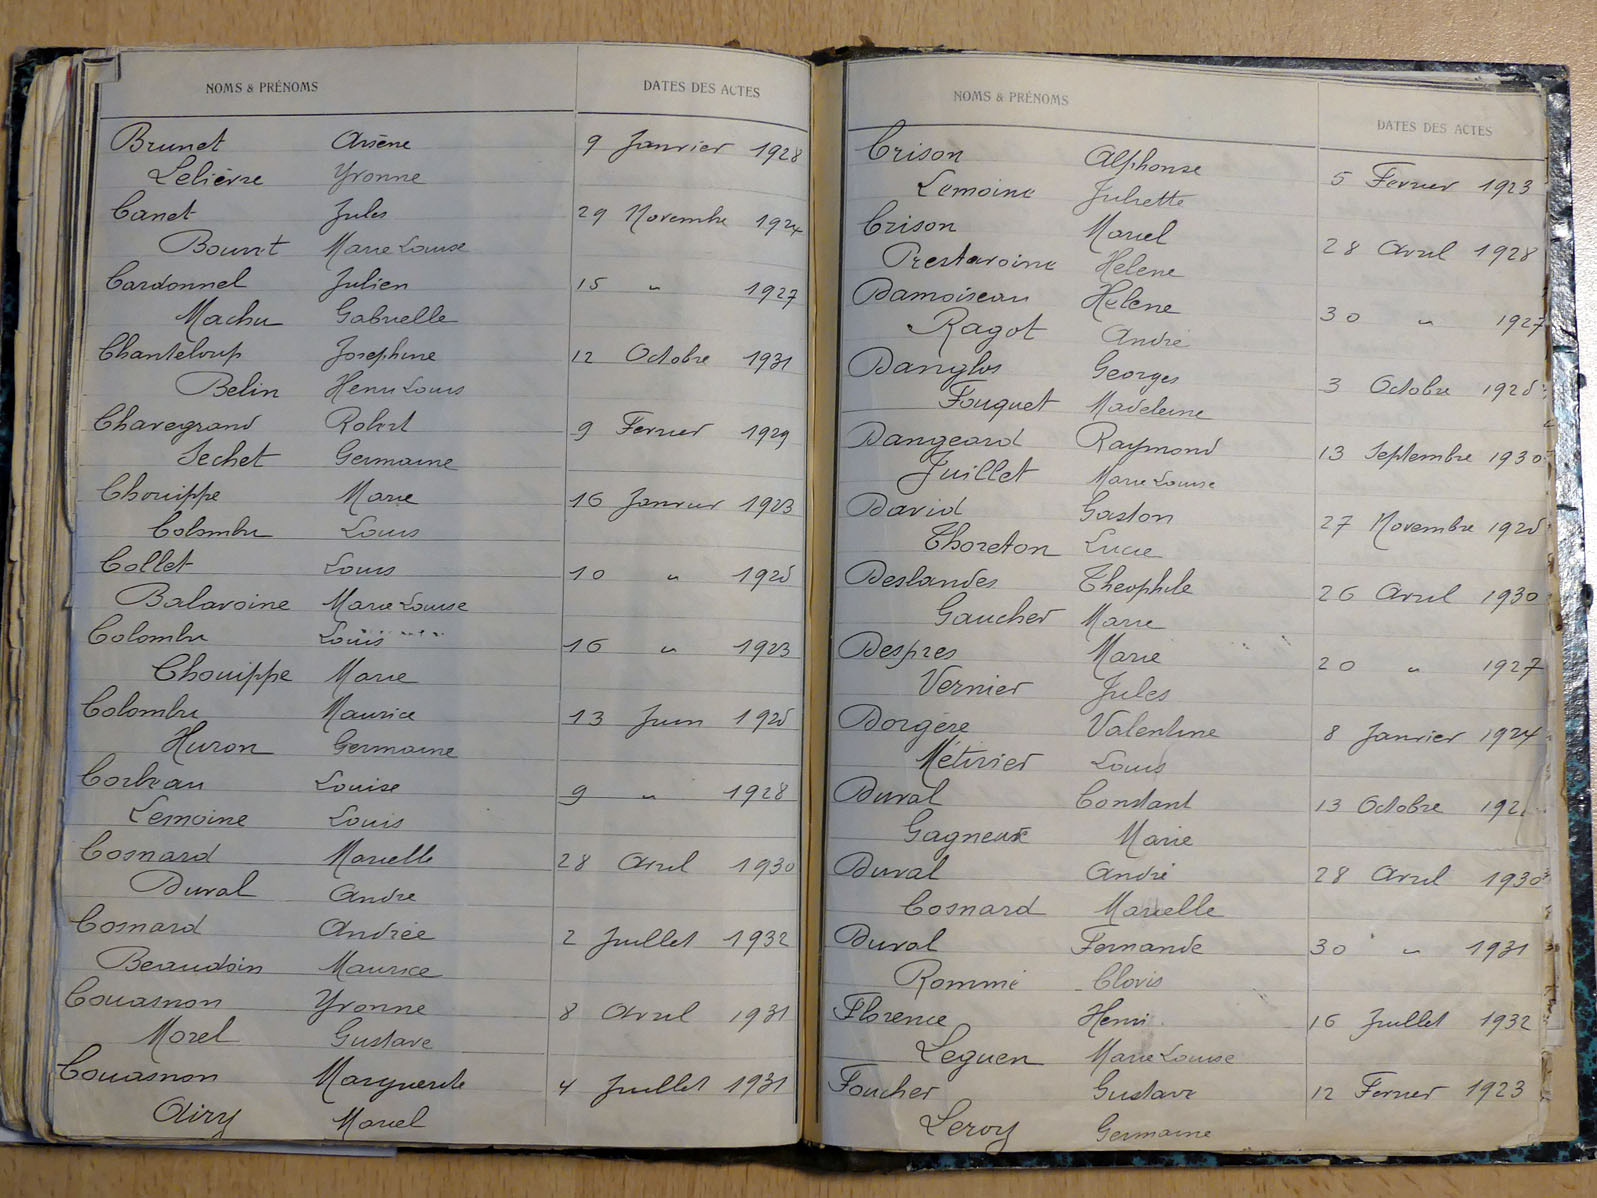 NOMS & PRÉNOMS DATES DES ACTES
Brunet Arsène 9 Janvier 1928
Lelièvre Yvonne
Canet Jules 29 Novembre 1924
Bouvet Marie Louise
Cardonnel Julien 15 " 1927
Machu Gabrielle
Chanteloup Josephine 12 Octobre 1931
Belin Henri Louis
Chavegrand Robert 9 Fevrier 1929
Sechet Germaine
Chouippe Marie 16 Janvier 1923
Colombu Louis
Collet Louis 10 " 1925
Balavoine Marie Louise
Colombu Louis 16 " 1923
Chouippe Marie
Colombu Maurice 13 Juin 1925
Huron Germaine
Corbeau Louise 9 " 1928
Lemoine Louis
Cosnard Marcelle 28 Avril 1930
Duval André
Cosnard Andrée 2 Juillet 1932
Beaudoin Maurice
Couasnon Yvonne 8 Avril 1931
Morel Gustave
Couasnon Marguerite 4 Juillet 1931
Airy Marcel
NOMS & PRÉNOMS DATES DES ACTES
Crison Alphonse 5 Fevrier 1923
Lemoine Juliette
Crison Marcel 28 Avril 1928
Prestavoine Helene
Damoiseau Helene 30 " 1927
Ragot André
Danglos Georges 3 Octobre
Fouquet Madeleine
Dangeard Raymond 13 Septembre 1930
Juillet Marie Louise
David Gaston 27 Novembre 1925
Thoreton Lucie
Deslandes Theophile 26 Avril 1930
Gaucher Marie
Despres Marie 20 " 1927
Vernier Jules
Dorgère Valentine 8 Janvier 1924
Métivier Louis
Duval Constant 13 Octobre
Gagneux Marie
Duval André 28 Avril 1930
Cosnard Marcelle
Duval Fernande 30 " 1931
Rommé Clovis
Florence Henri 16 Juillet 1932
Leguen Marie Louise
Foucher Gustave 12 Fevrier 1923
Leroy Germaine